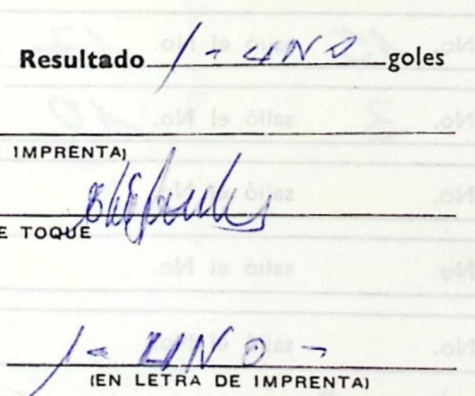 Resultado 1 - UNO goles
IMPRENTA)
E TOQUE
1 - UNO -
(EN LETRA DE IMPRENTA)